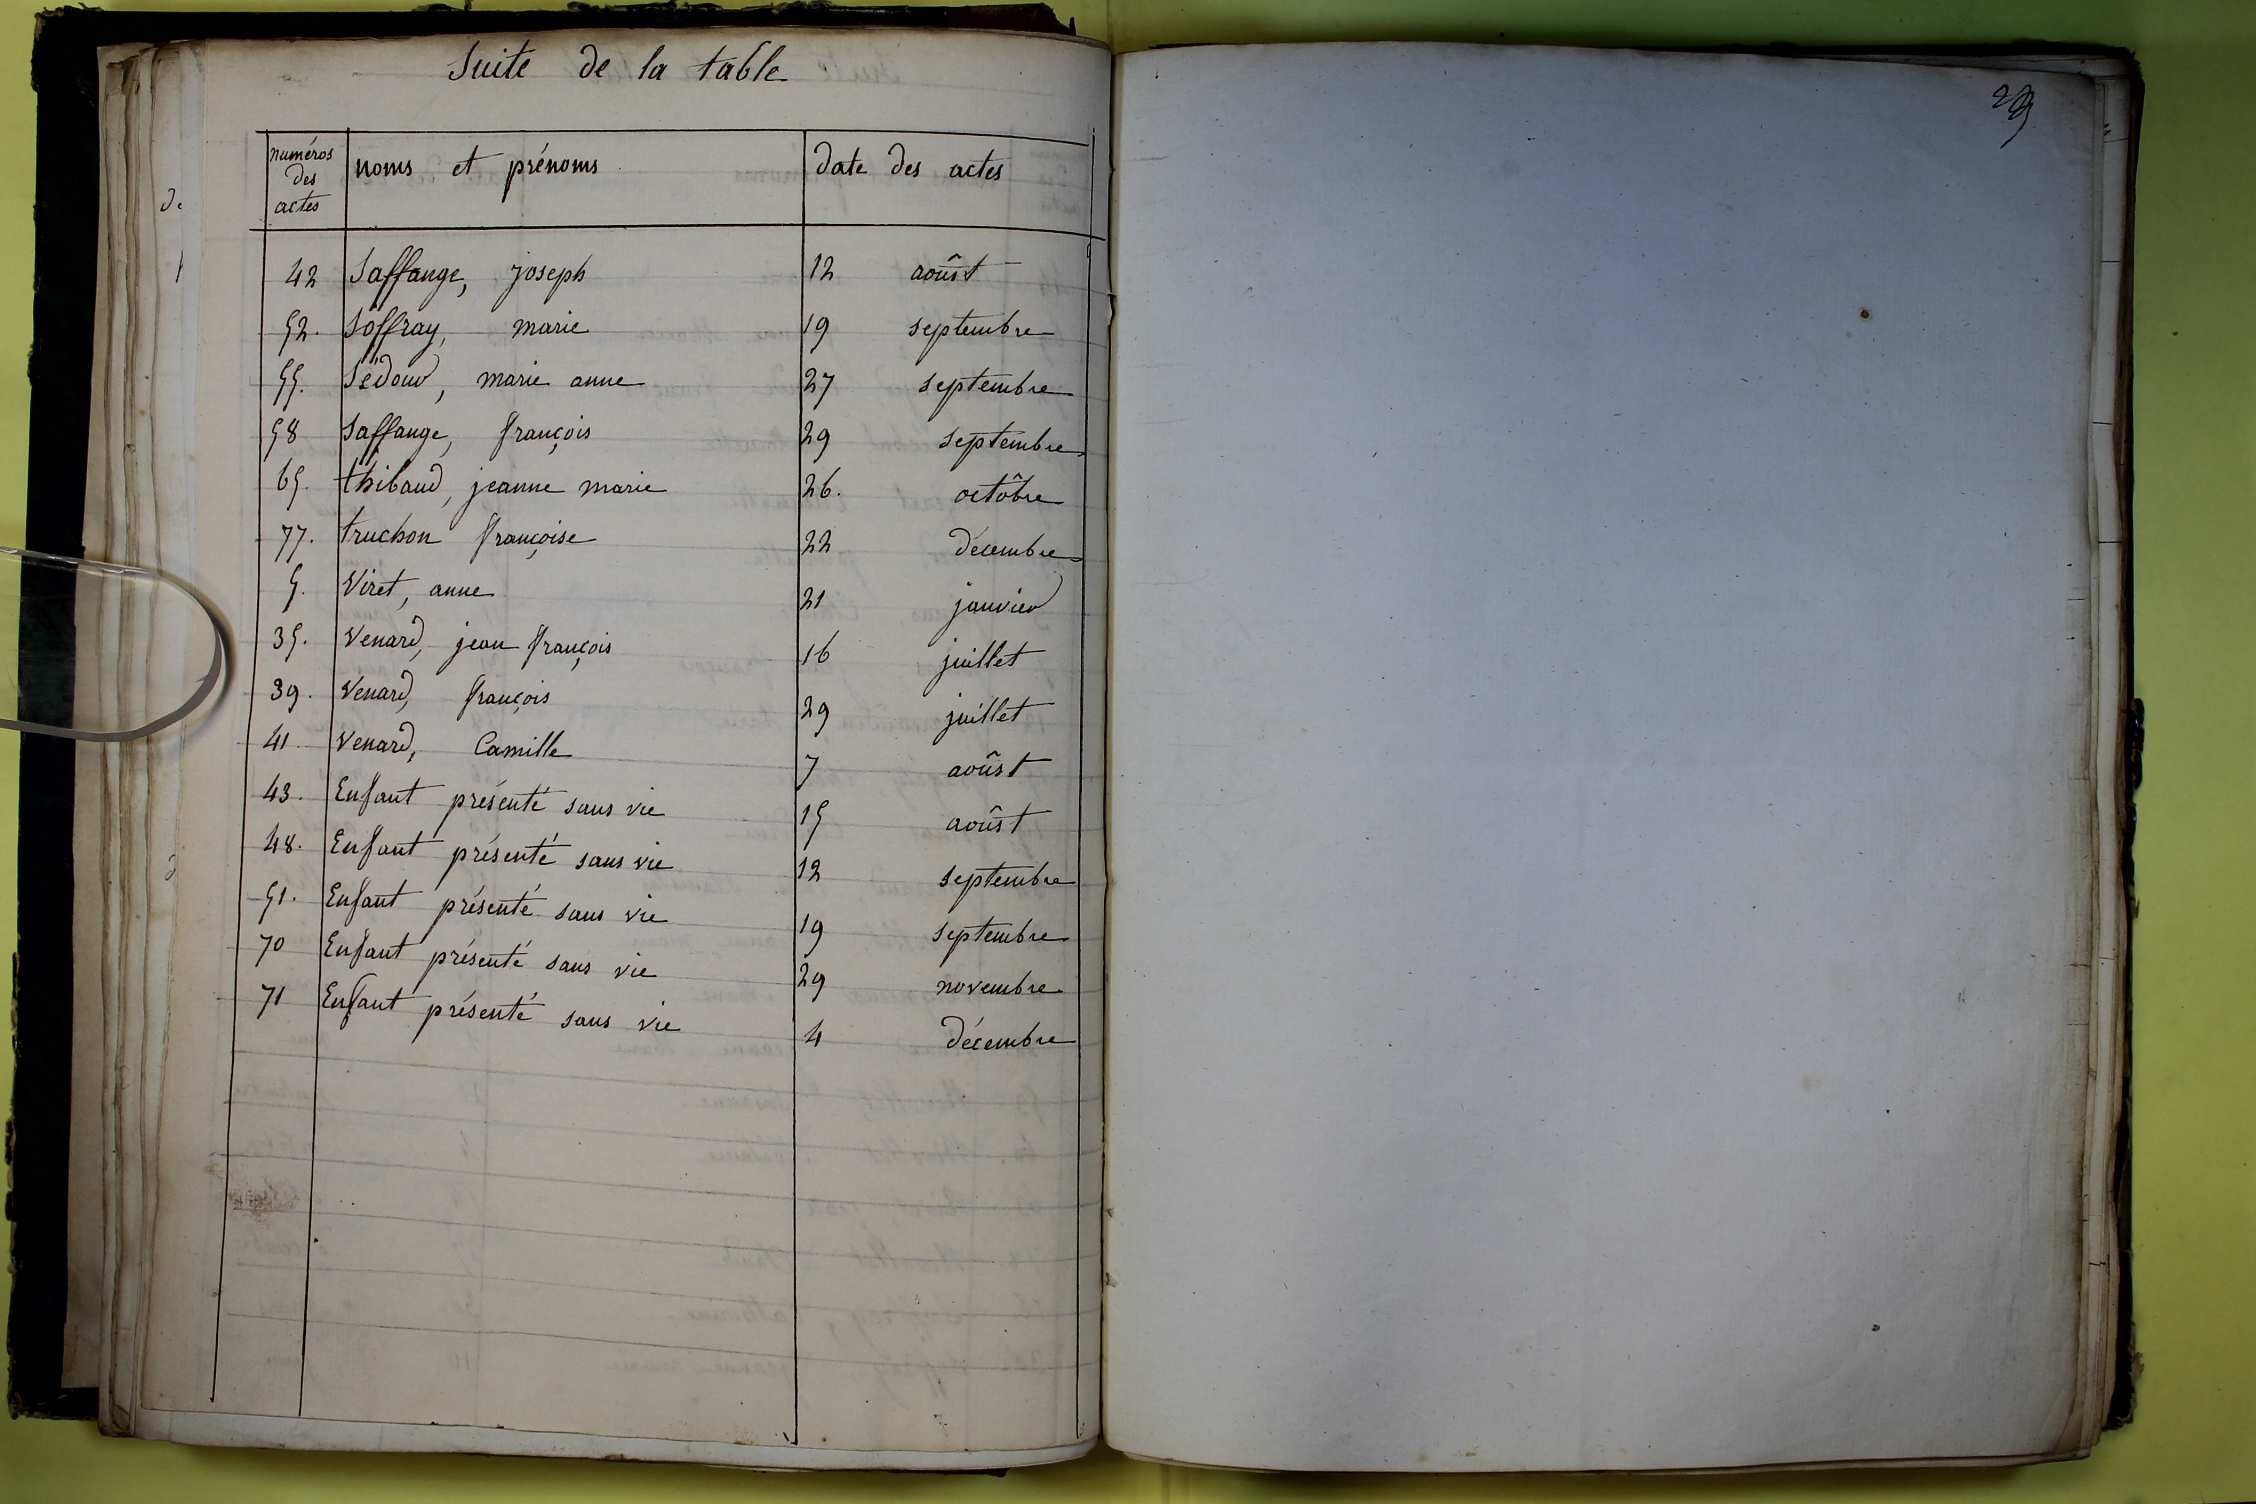 Suite de la table
numéros des actes
noms et prénoms
date des actes
42 Saffange, joseph 12 aoûst
52. Soffray, marie 19 septembre
55. Sédour, marie anne 27 septembre
58 Saffange, françois 29 septembre
65. thibaud, jeanne marie 26. octôbre
77. truchon françoise 22 décembre
5. Viret, anne 21 janvier
35. Venard, jean françois 16 juillet
39. Venard, françois 29 juillet
41 Venard, Camille 7 aoûst
43. Enfant présenté sans vie 15 aoûst
48. Enfant présenté sans vie 12 septembre
51. Enfant présenté sans vie 19 septembre
70 Enfant présenté sans vie 29 novembre
71 Enfant présenté sans vie 4 décembre